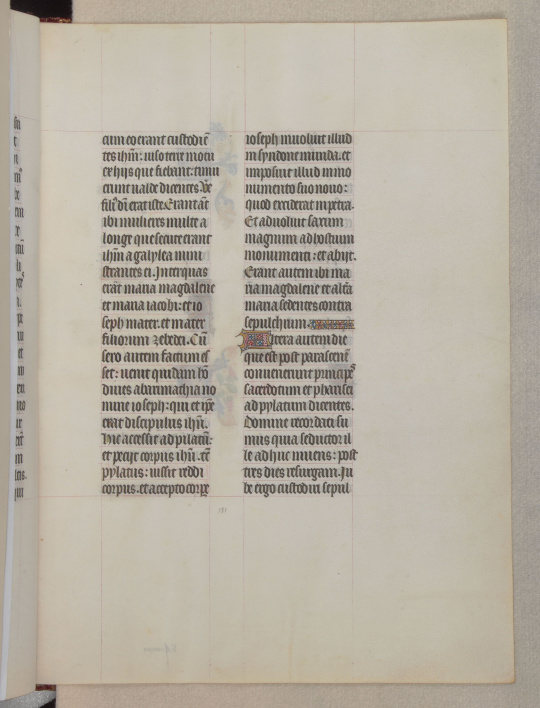 cum eo erant custodiē
tes ihm̄: uiso terre motu
et hijs que fiebant: timu
erunt ualde dicentes. Ve
filius dei erat iste. Erant āt
ibi mulieres multe a
longe que secute erant
ihm̄ a galylea mini
strantes ei. Inter quas
erāt maria magdalene
et maria iacobi: et io
seph mater: et mater
filiorum zebedei. Cū
sero autem factum es
set: uenit quidam hō
diues abarimathia no
mine ioseph: qui et ipē
erat discipulus ihū.
Hic accessit ad pilatū:
et petijt corpus ihū. tc̄
pylatus: iussit reddi
corpus. et accepto corpe
ioseph inuoluit illud
in syndone munda. et
imposuit illud in mo
numento suo nouo:
quod exciderat in petra.
Et aduoluit saxum
magnum ad hostium
monumenti: et abijt.
Erant autem ibi ma
ria magdalene et altā
maria sedentes contra
sepulchrum.
Altera autem die
que est post parasceuē
conuenerunt principes
sacerdotum et pharisei
ad pylatum dicentes.
Domine recordati su
mus quia seductor il
le adhuc uiuens: post
tres dies resurgam. Iu
be ergo custodiri sepul